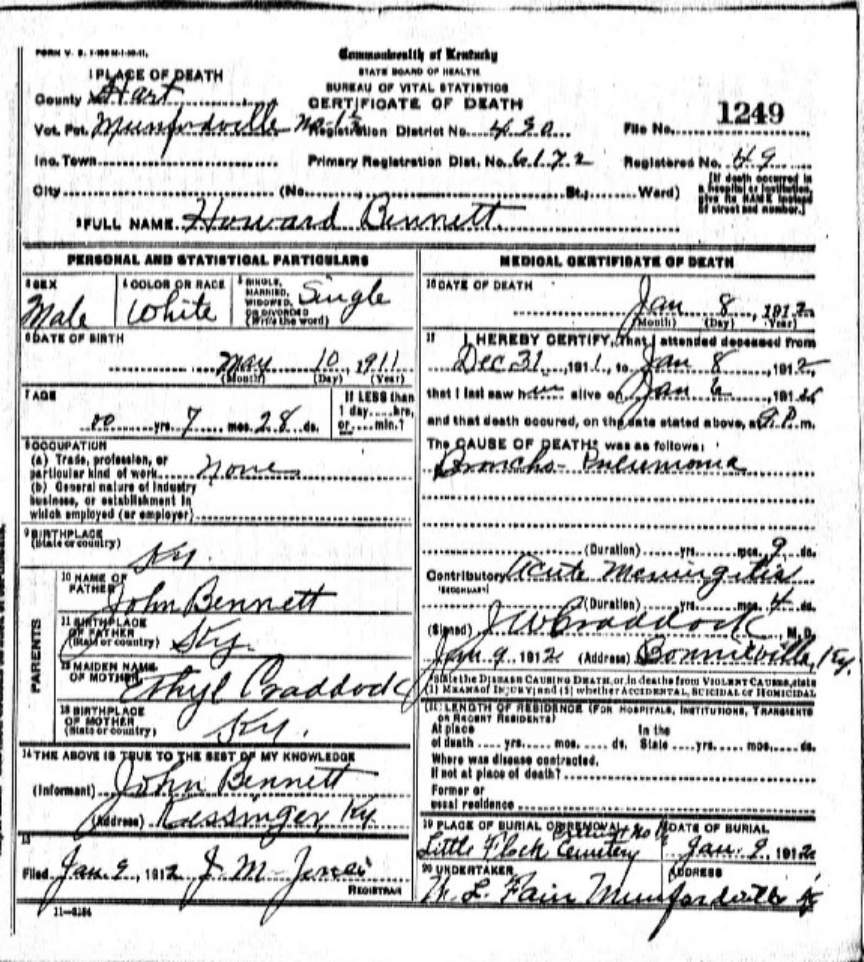 Commonwealth of Kentucky
STATE BOARD OF HEALTH
BUREAU OF VITAL STATISTICS
CERTIFICATE OF DEATH
1 PLACE OF DEATH
County of Hart
Vot. Pct. Munfordville No-1 Registration District No. 430 File No. 1249
Inc. Town Primary Registration Dist. No. 6172 Registered No. 49
City (No. St.; Ward) [If death occurred in a hospital or institution, give its NAME instead of street and number.]
FULL NAME Howard Bennett
PERSONAL AND STATISTICAL PARTICULARS
3 SEX Male
4 COLOR OR RACE White
5 SINGLE, MARRIED, WIDOWED, OR DIVORCED (Write the word) Single
6 DATE OF BIRTH
May 10, 1911
(Month) (Day) (Year)
7 AGE
00 yrs. 7 mos. 28 ds.
If LESS than 1 day....hrs, or....min.?
8 OCCUPATION
(a) Trade, profession, or
particular kind of work None
(b) General nature of industry
business, or establishment in
which employed (or employer)
9 BIRTHPLACE
(State or country) Ky.
PARENTS
10 NAME OF FATHER John Bennett
11 BIRTHPLACE OF FATHER (State or country) Ky.
12 MAIDEN NAME OF MOTHER Ethyl Craddock
13 BIRTHPLACE OF MOTHER (State or country) Ky.
14 THE ABOVE IS TRUE TO THE BEST OF MY KNOWLEDGE
(Informant) John Bennett
(Address) Kessinger, Ky
15
Filed Jan. 9, 1912 J. M.
REGISTRAR
11-3184
MEDICAL CERTIFICATE OF DEATH
16 DATE OF DEATH
Jan 8, 1912
(Month) (Day) Year)
17 I HEREBY CERTIFY, That I attended deceased from
Dec 31, 1911, to Jan 8, 1912,
that I last saw him alive on Jan 6, 1912
and that death occured, on the date stated above, at 9 P. m.
The CAUSE OF DEATH* was as follows:
Broncho-Pneumonia
(Duration) yrs. mos. 9 ds.
Contributory Acute Meningitis
(SECONDARY)
(Duration) yrs. mos. 4 ds.
(Signed) J W Craddock, M.D.
Jan. 9 1912 (Address) Bonnieville, Ky.
*State the DISEASE CAUSING DEATH, or, in deaths from VIOLENT CAUSES, state
(1) MEANS OF INJURY; and (2) whether ACCIDENTAL, SUICIDAL or HOMICIDAL
LENGTH OF RESIDENCE (FOR HOSPITALS, INSTITUTIONS, TRANSIENTS
OR RECENT RESIDENTS)
At place In the
of death .... yrs. .... mos. .... ds. State .... yrs. .... mos. .... ds.
Where was disease contracted,
if not at place of death?
Former or
usual residence
19 PLACE OF BURIAL OR REMOVAL
Little Flock Cemetery
DATE OF BURIAL
Jan. 9, 1912
20 UNDERTAKER
L. Fair
ADDRESS
Munfordville Ky